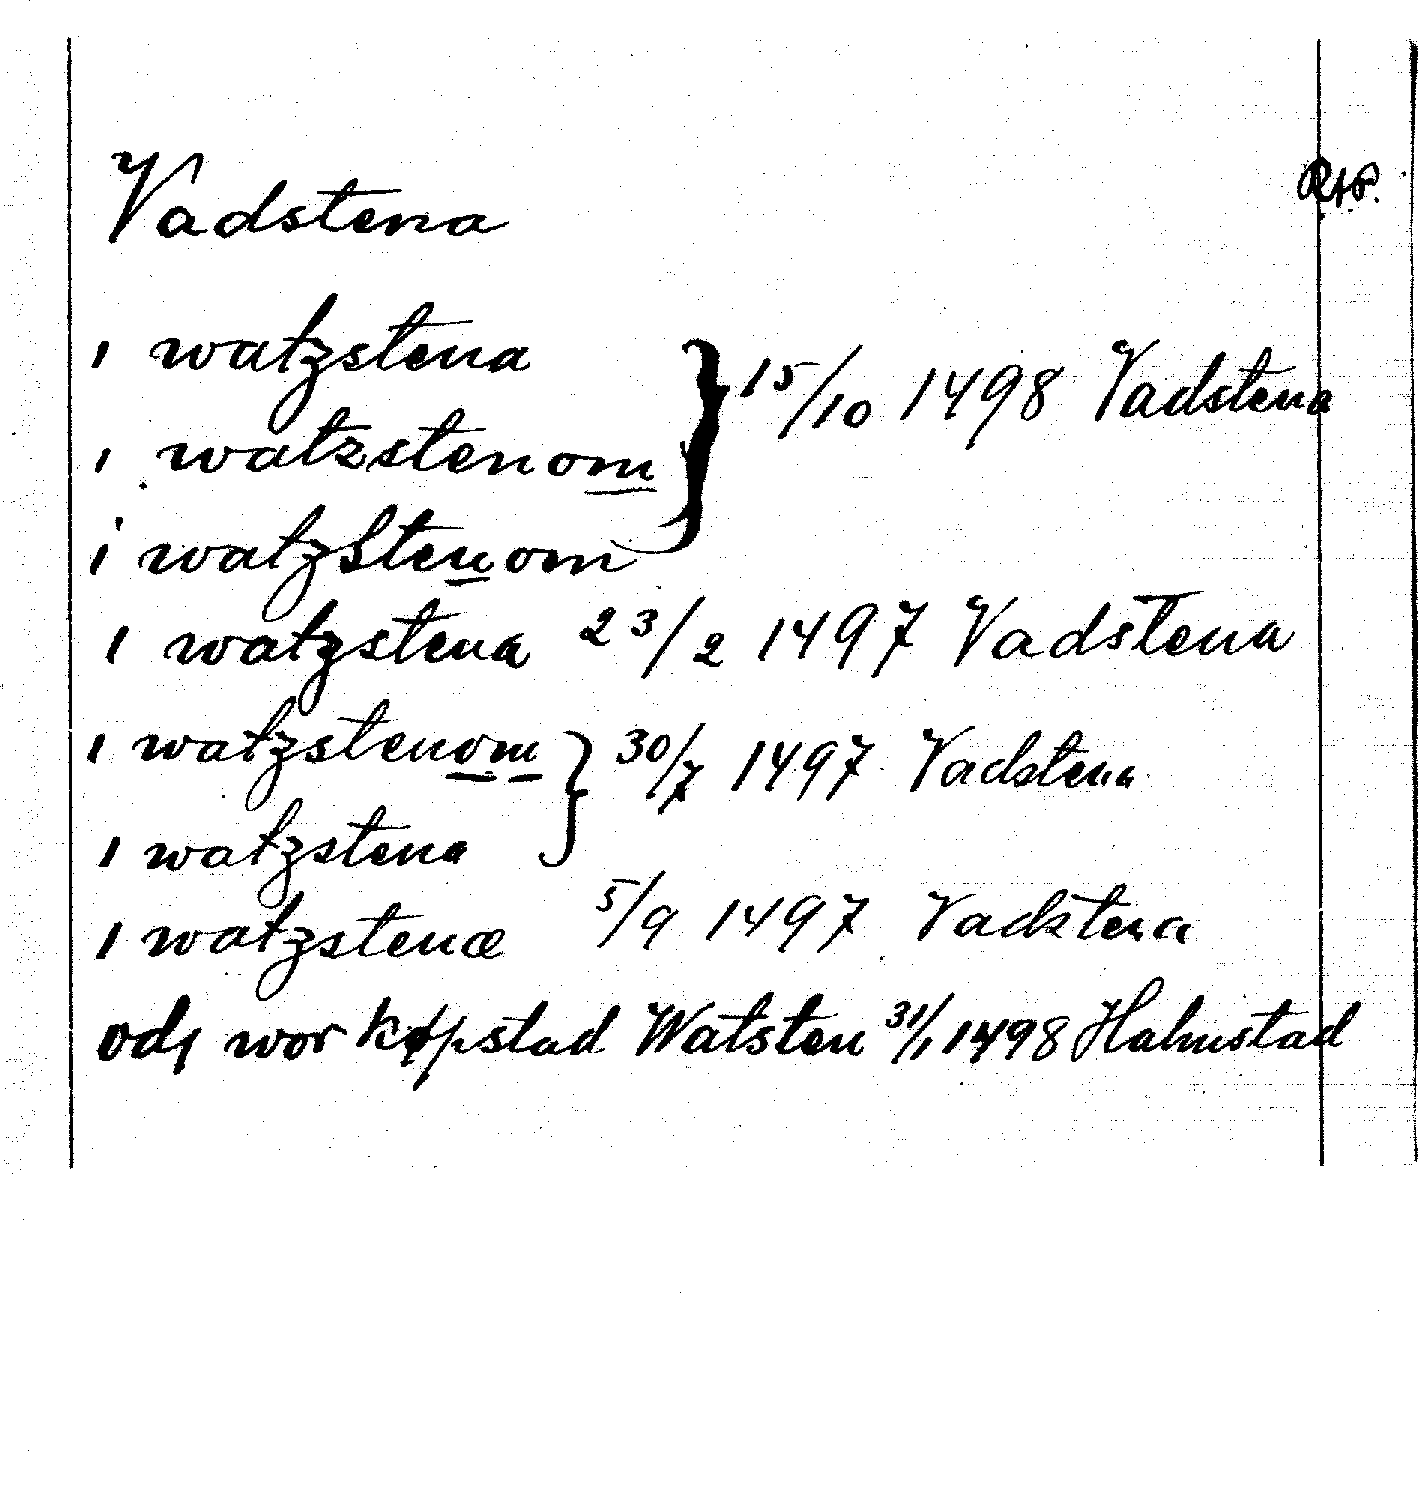 Vadstena RAP.
i watzstena
i watzstenom } 15/10 1498 Vadstena
i watzstenom
i watzstena 23/2 1497 Vadstena
i watzstenom } 30/7 1497 Vadstena
i watzstena
i watzstenæ 5/9 1497 Vadstena
odj wor køpstad Watsten 31/1 1498 Halmstad